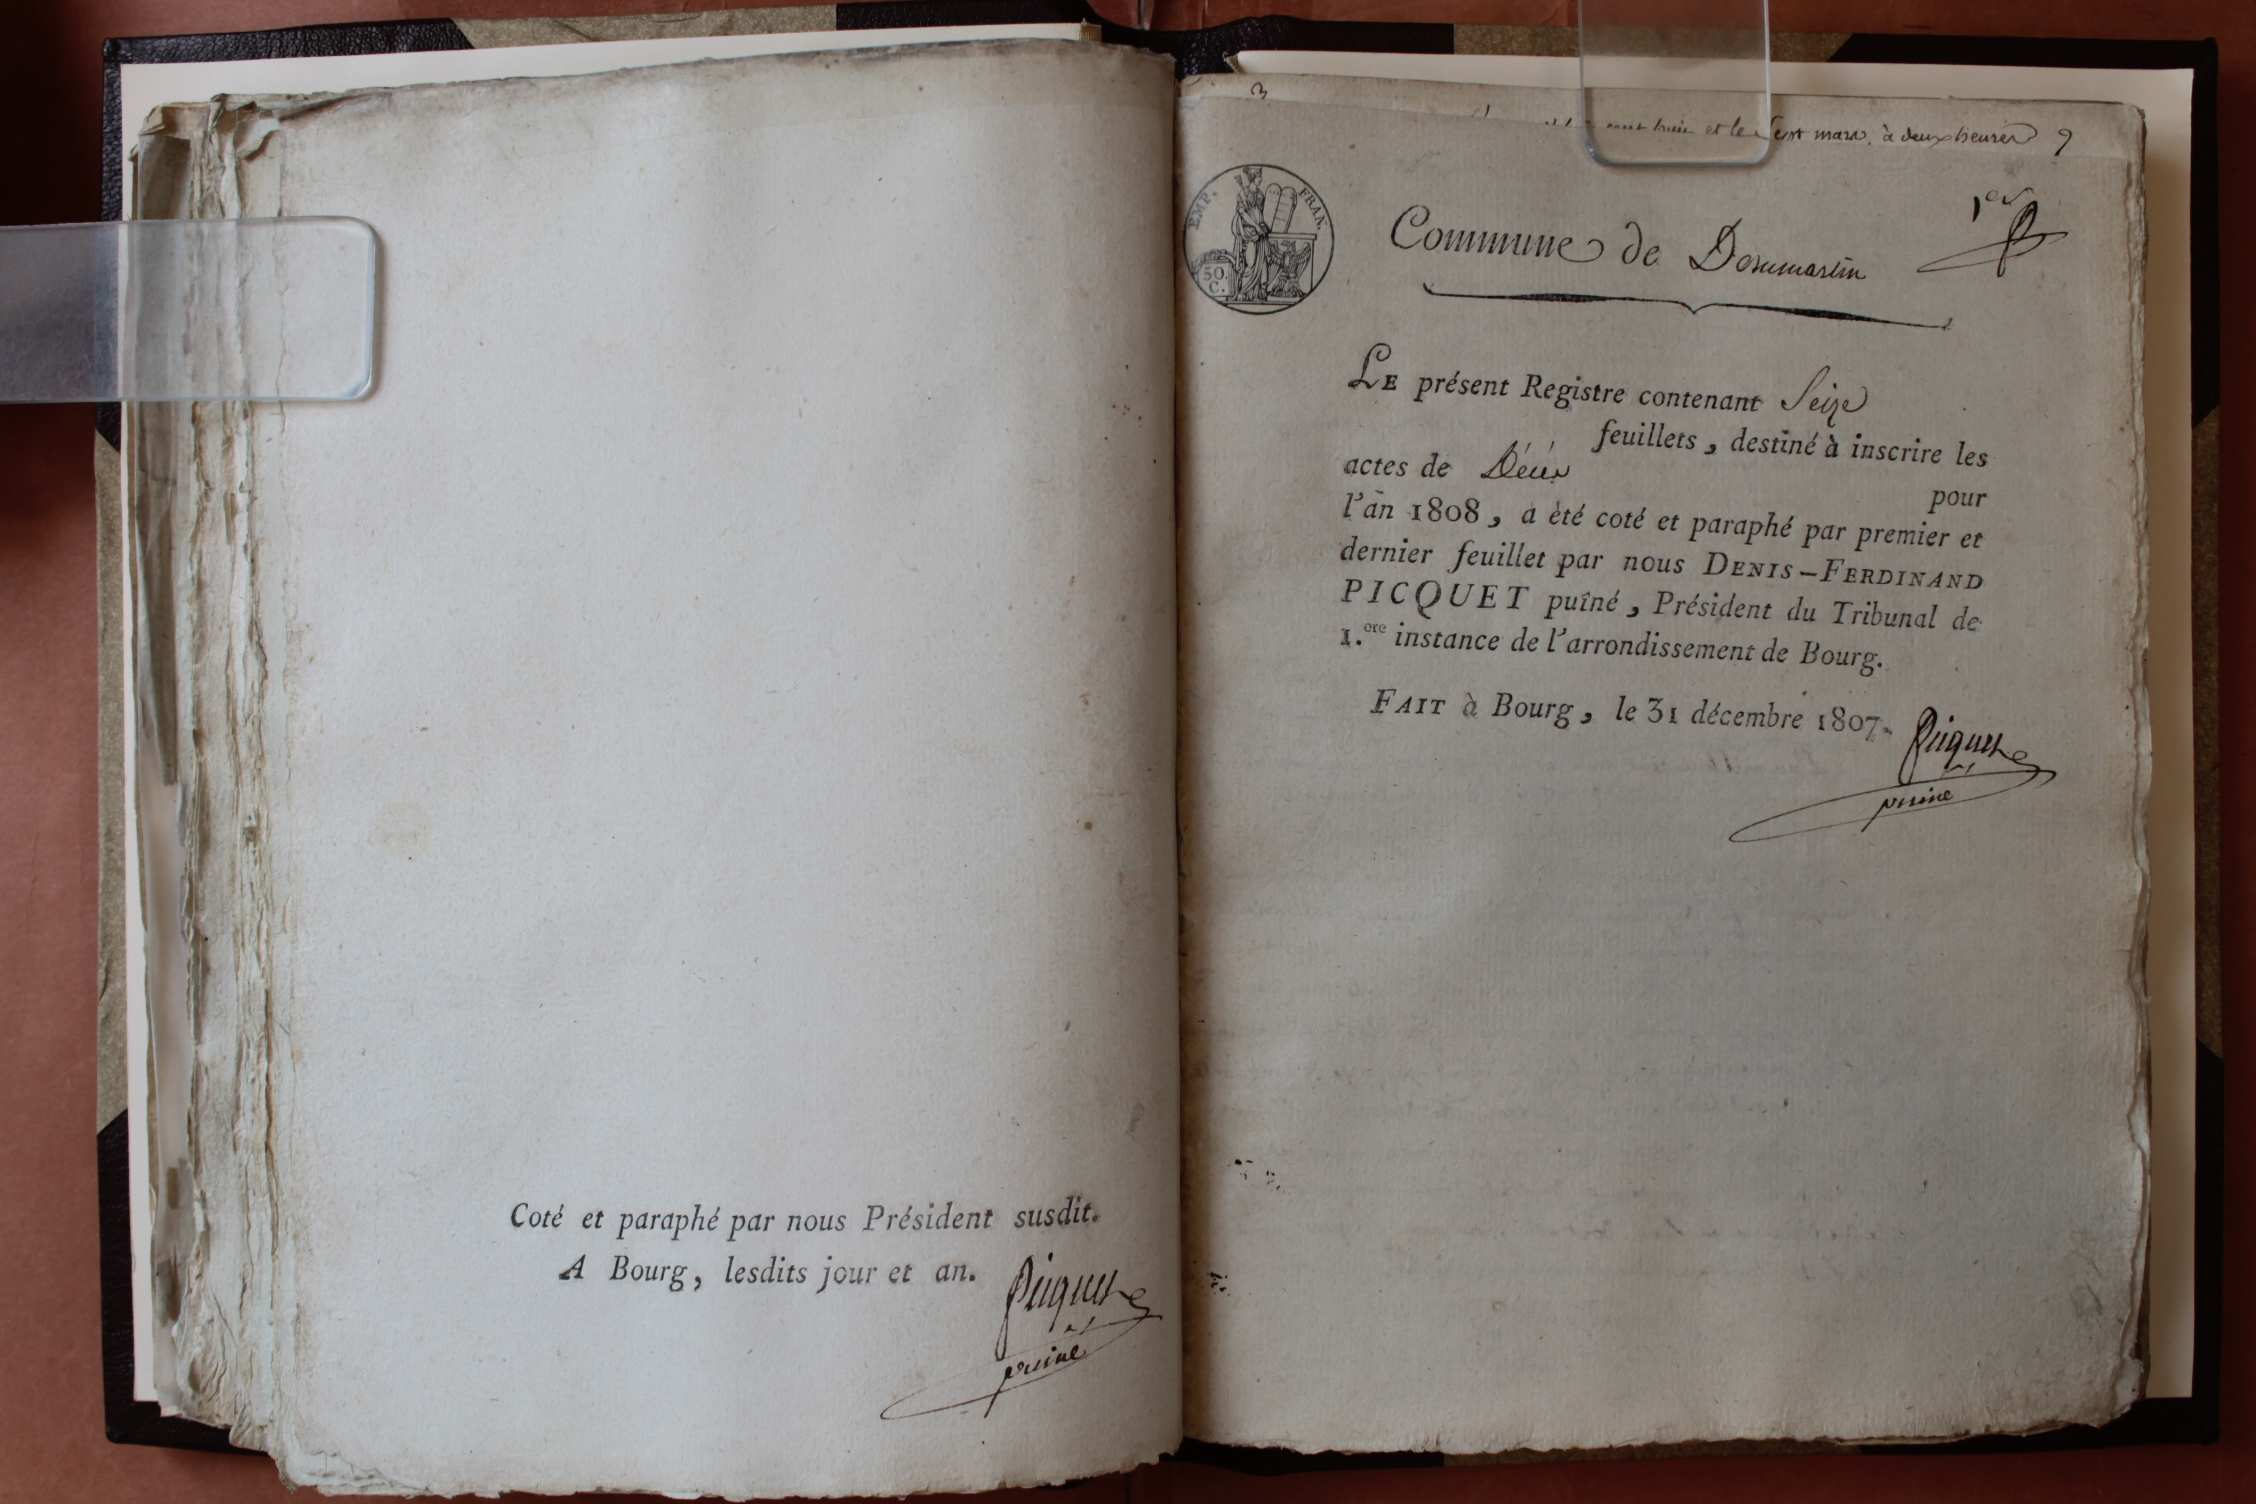 Coté et paraphé par nous Président susdit.
A Bourg, lesdits jour et an.
Picquet
puiné
3
huit et le Sept mars, à deux heures
EMP. FRAN.
50.
C.
1er
Commune de Dommartin
LE présent Registre contenant Seize
feuillets, destiné à inscrire les
actes de Décés
pour
l'an 1808, a èté coté et paraphé par premier et
dernier feuillet par nous DENIS-FERDINAND
PICQUET puîné, Président du Tribunal de
1.ere instance de l'arrondissement de Bourg.
FAIT à Bourg, le 31 décembre 1807.
Picquet
puiné